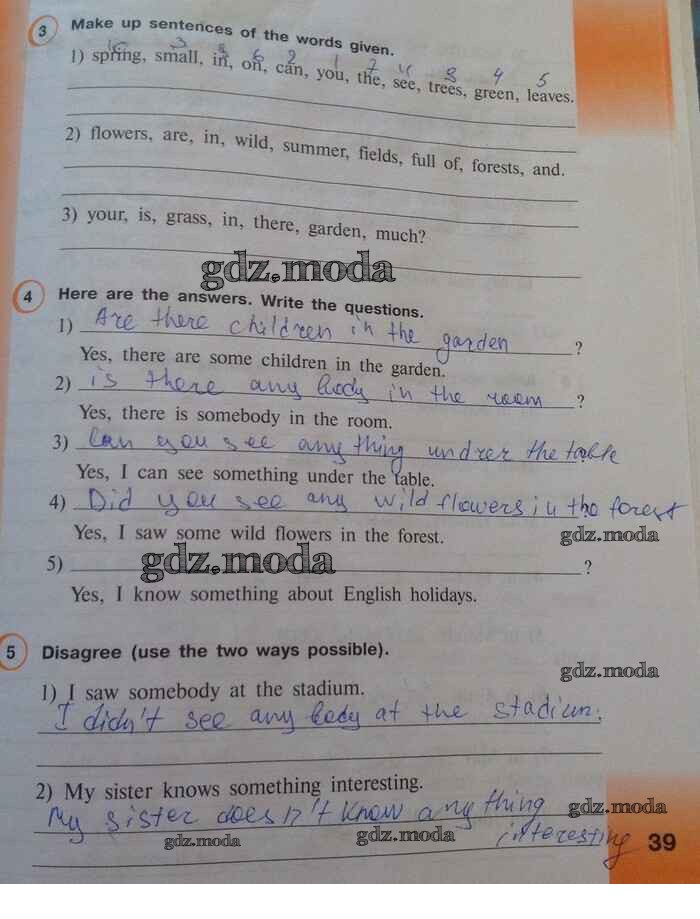 3 Make up sentences of the words given.
1) spring, small, in, on, can, you, the, see, trees, green, leaves.
2) flowers, are, in, wild, summer, fields, full of, forests, and.
3) your, is, grass, in, there, garden, much?
gdz.moda
4 Here are the answers. Write the questions.
1) Are there children in the garden ?
Yes, there are some children in the garden.
2) is there any body in the room ?
Yes, there is somebody in the room.
3) Can you see any thing undrer the table
Yes, I can see something under the table.
4) Did you see any wild flowers in the forest
Yes, I saw some wild flowers in the forest.
gdz.moda
5) gdz.moda ?
Yes, I know something about English holidays.
5 Disagree (use the two ways possible).
gdz.moda
1) I saw somebody at the stadium.
I didn't see any body at the stadium.
2) My sister knows something interesting.
My sister does n't know any thing
gdz.moda
interesting
gdz.moda
gdz.moda
39